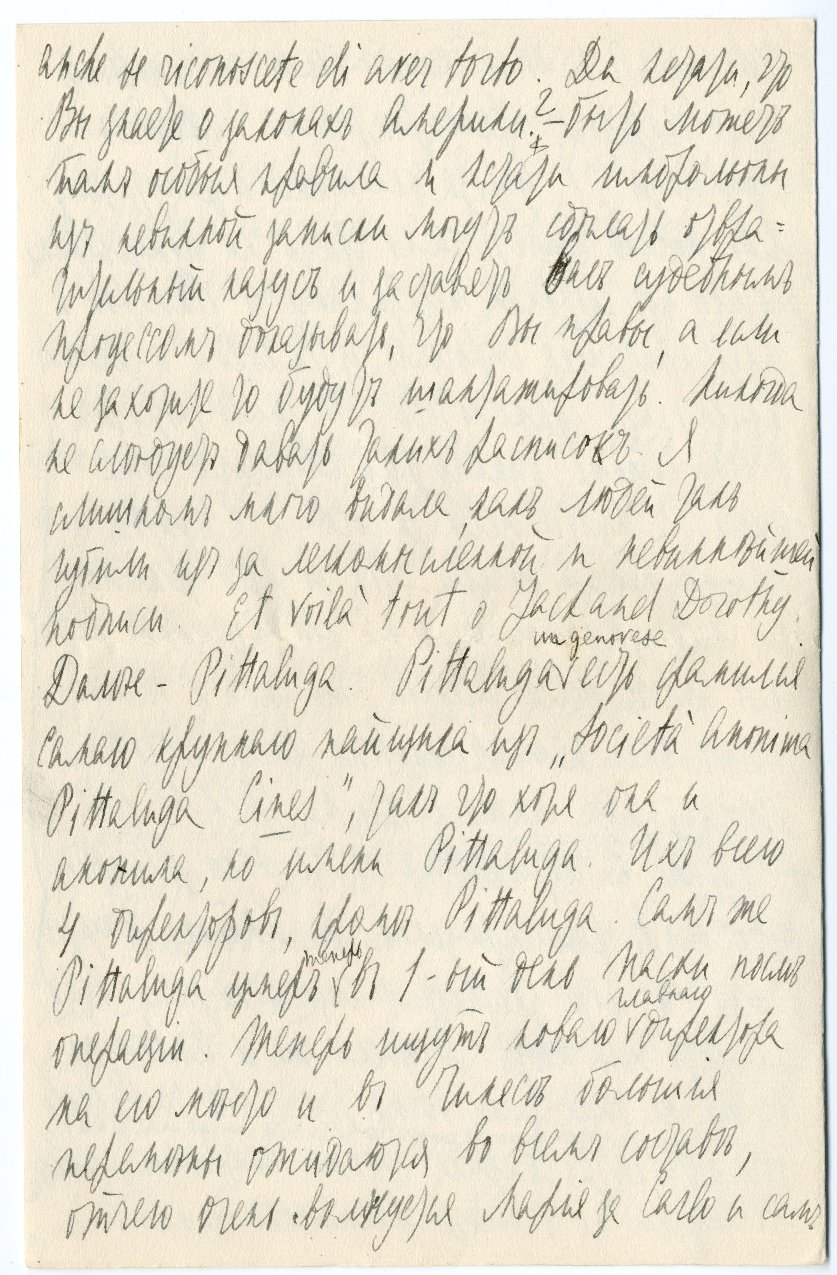 anche se riconoscete di aver torto. Да кстати, что
Вы знаете о законахъ Америки? – быть можетъ
тамъ особыя правила и кстати
изъ невинной записки могутъ сдѣлать отвра=
тительный казусъ и заставятъ Васъ судебнымъ
процессомъ доказывать, что Вы правы, а если
не захотите то будутъ шантажировать. Никогда
не слѣдуетъ давать такихъ расписокъ. Я
слишкомъ много видала, какъ людей такъ
губили изъ за легкомысленной и невиннѣйшей
подписи. Et voilà tout о Jack and Dorothy.
Далѣе – Pittaluga. Pittaluga un genovese есть фамилія
самаго крупнаго пайщика изъ „Società Anonima
Pittaluga Cines", такъ что хотя она и
анонима, но имени Pittaluga. Ихъ всего
4 директоровъ, кромѣ Pittaluga. Самъ же
Pittaluga умеръ теперь въ 1-ый день Пасхи послѣ
операціи. Теперь ищутъ новаго главнаго директора
на его мѣсто и въ Чинесъ большія
перемѣны ожидаются во всемъ составѣ,
отчего очень волнуется Марія за Carlo и самъ